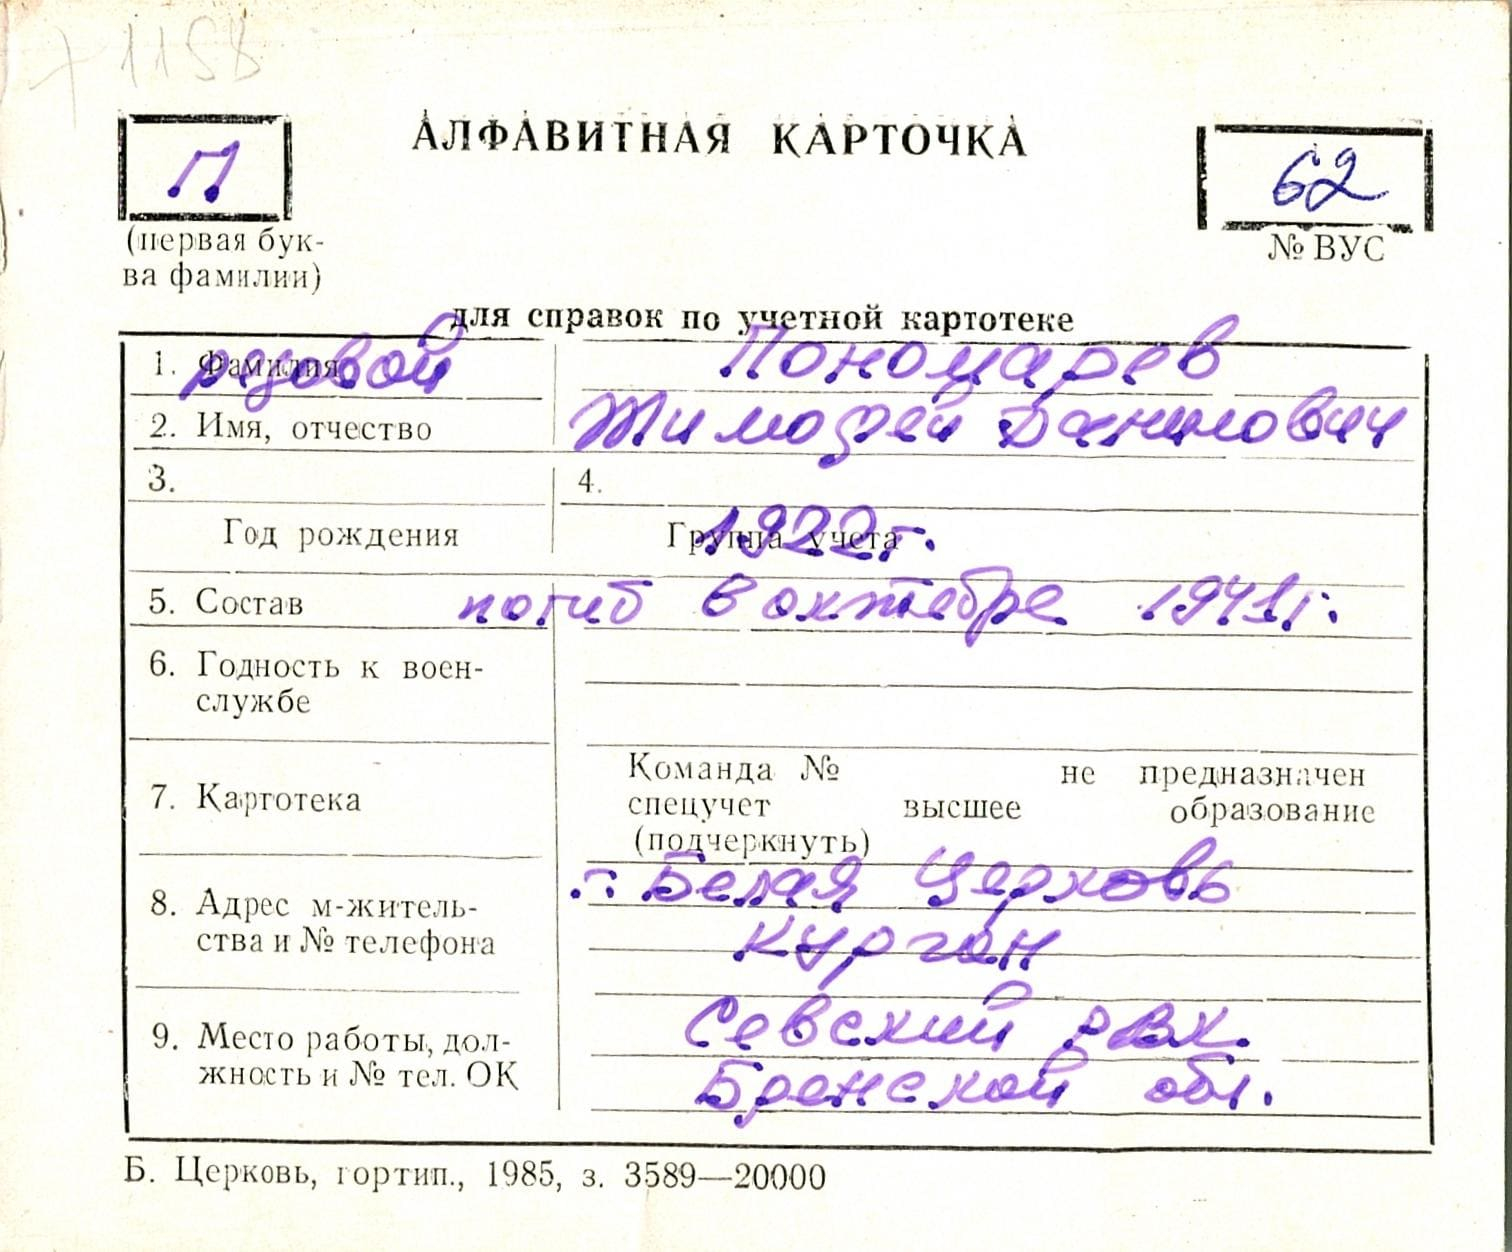 1158
П
АЛФАВИТНАЯ КАРТОЧКА
62
(первая бук-
ва фамилии)
№ ВУС
для справок по учетной картотеке
1. Фамилия рядовой Пономарев
2. Имя, отчество Тимофей Данилович
3. 4.
Год рождения Группа учета 1922 г.
5. Состав погиб в октябре 1941 г.
6. Годность к воен-
службе
Команда № не предназначен
7. Картотека спецучет высшее образование
(подчеркнуть)
8. Адрес м-житель- г. Белая Церковь
ства и № телефона Курган
9. Место работы, дол- Севский РВК.
жность и № тел. ОК Брянской обл.
Б. Церковь, гортип., 1985, з. 3589—20000